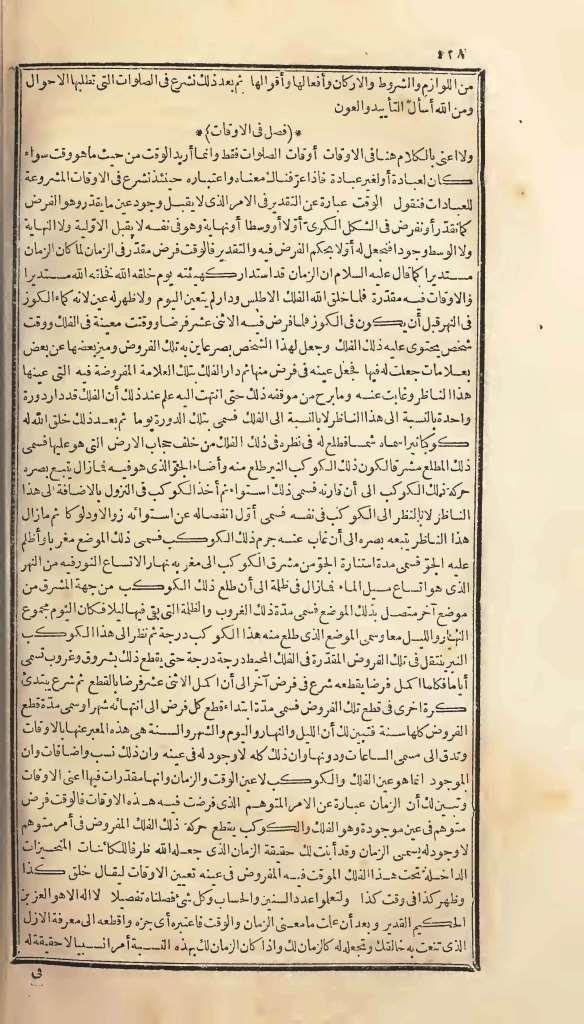 ٤٢٨
من اللوازم والشروط والاركان وأفعالها وأقوالها ثم بعد ذلك نشرع فى الصلوات التى تطلبها الاحوال
ومن الله أسأل التأييد والعون
*(فصل فى الاوقات)*
ولا اعنى بالكلام هنا فى الاوقات أوقات الصلوات فقط وانما أريد الوقت من حيث ما هو وقت سواء
كان لعبادة أو لغير عبادة فاذا عرفناك معناه واعتباره حينئذ نشرع فى الاوقات المشروعة
للعبادات فنقول الوقت عبارة عن التقدير فى الامر الذى لا يقبل وجود عين ما يقدر وهو الفرض
كما نقدر أو نفرض فى الشكل الكرىّ أوّلا أو وسطا أو نهاية وهو فى نفسه لا يقبل الاوّلية ولا النهاية
ولا الوسط وجودا فنجعل له أوّلا بحكم الفرض فيه والتقدير فالوقت فرض مقدّر فى الزمن لما كان الزمان
مستديرا كما قال عليه السلام ان الزمان قد استدار كهيئته يوم خلقه الله فخلقه الله مستديرا
والاوقات فيه مقدّرة فلما خلق الله الفلك الاطلس ودار لم يتعين اليوم ولا ظهر له عين لانه كماء الكوز
فى النهر قبل أن يكون فى الكوز فلما فرض فيه الاثنى عشر فرضا ووقتت معينة فى الفلك ووقت
شخص يحتوى عليه ذلك الفلك وجعل لهذا الشخص بصر عاين به تلك الفروض وميز بعضها عن بعض
بعلامات جعلت له فيها فجعل عينه فى فرض منها ثم دار الفلك بتلك العلامة المفروضة فيه التى عينها
هذا الناظر وغابت عنه وما برح من موقفه ذلك حتى انتهت اليه علم عند ذلك أن الفلك قد دار دورة
واحدة بالنسبة الى هذا الناظر لا بالنسبة الى الفلك فسمى بتلك الدورة يوما ثم بعد ذلك خلق الله له
كوكبا نيرا سماه شمسا فطلع له فى نظره فى ذلك الفلك من خلف حجاب الارض التى هو عليها فسمى
ذلك المطلع مشرقا لكون ذلك الكوكب النير طلع منه وأضاء الجوّ الذى هو فيه فما زال يتبع بصره
حركة ذلك الكوكب الى أن قارنه فسمى ذلك استواء ثم أخذ الكوكب فى النزول بالاضافة الى هذا
الناظر لا بالنظر الى الكوكب فى نفسه فسمى أوّل انفصاله عن استوائه زوالا ودلوكا ثم ما زال
هذا الناظر يتبعه بصره الى أن غاب عنه جرم ذلك الكوكب فسمى ذلك الموضع مغربا وأظلم
عليه الجوّ فسمى مدة استنارة الجوّ من مشرق الكوكب الى مغربه نهارا لاتساع النور فيه من النهر
الذى هو اتساع مسيل الماء فما زال فى ظلمة الى أن طلع ذلك الكوكب من جهة المشرق من
موضع آخر متصل بذلك الموضع فسمى مدّة ذلك الغروب والظلمة التى بقى فيها ليلا فكان اليوم مجموع
النهار والليل معا وسمى الموضع الذى طلع منه هذا الكوكب درجة ثم نظر الى هذا الكوكب
النير ينتقل فى تلك الفروض المقدّرة فى الفلك المحيط درجة درجة حتى يقطع ذلك بشروق وغروب تسمى
أياما فكلما اكمل فرضا بقطعه شرع فى فرض آخر الى أن اكمل الاثنى عشر فرضا بالقطع ثم شرع يبتدئ
كرة اخرى فى قطع تلك الفروض فسمى مدّة ابتداء قطع كل فرض الى انتهائه شهرا وسمى مدّة قطع
الفروض كلها سنة فتبين لك أن الليل والنهار واليوم والشهر والسنة هى هذه المعبر عنها بالاوقات
وتدق الى مسمى الساعات ودونها وان ذلك كله لا وجود له فى عينه وان ذلك نسب واضافات وان
الموجود انما هو عين الفلك والكوكب لا عين الوقت والزمان وانها مقدّرات فيها أعنى الاوقات
وتبين لك أن الزمان عبارة عن الامر المتوهم الذى فرضت فيه هذه الاوقات فالوقت فرض
متوهم فى عين موجودة وهو الفلك والكوكب يقطع حركة ذلك الفلك المفروض فى أمر متوهم
لا وجود له يسمى الزمان وقد أبنت لك حقيقة الزمان الذى جعله الله ظرفا للكائنات المتحيزات
الداخلة تحت هذا الفلك الموقت فيه المفروض فى عينه تعيين الاوقات ليقال خلق كذا
وظهر كذا فى وقت كذا ولتعلموا عدد السنين والحساب وكل شئ فصلناه تفصيلا لا اله الا هو العزيز
الحكيم القدير وبعد أن علمت ما معنى الزمان والوقت فاعتبره أى جزه واقطعه الى معرفة الازل
الذى تنعت به خالقك وتجعله له كالزمان لك واذا كان الزمان لك بهذه النسبة أمرا نسبيا لا حقيقة له
فى